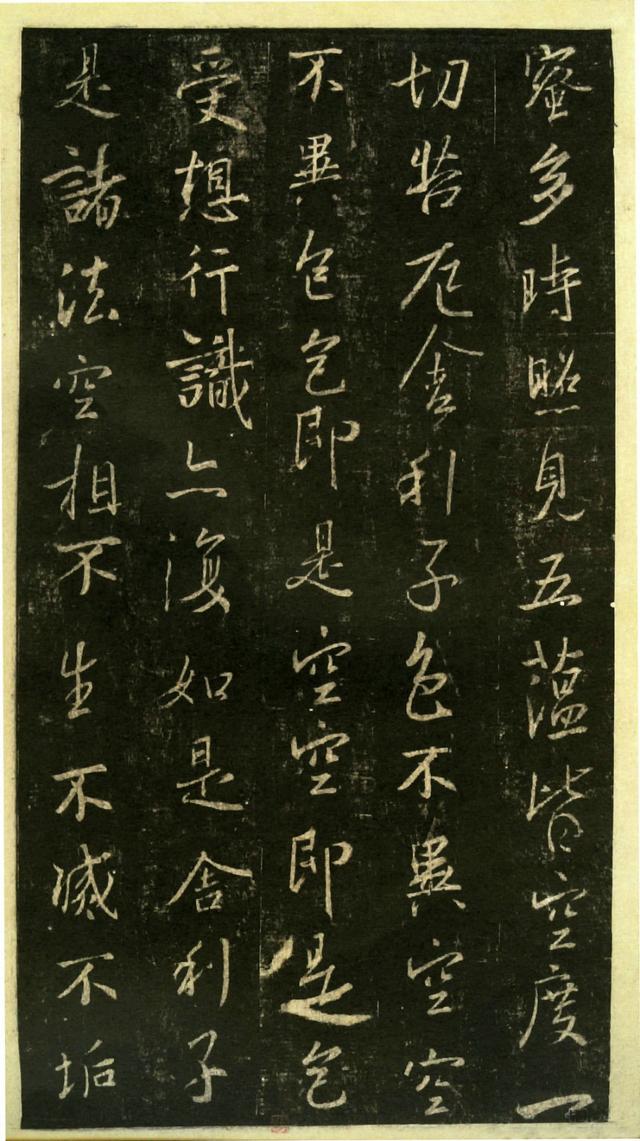 蜜多時照見五蘊皆空度一
切苦厄舍利子色不異空空
不異色色即是空空即是色
受想行識亦復如是舍利子
是諸法空相不生不滅不垢